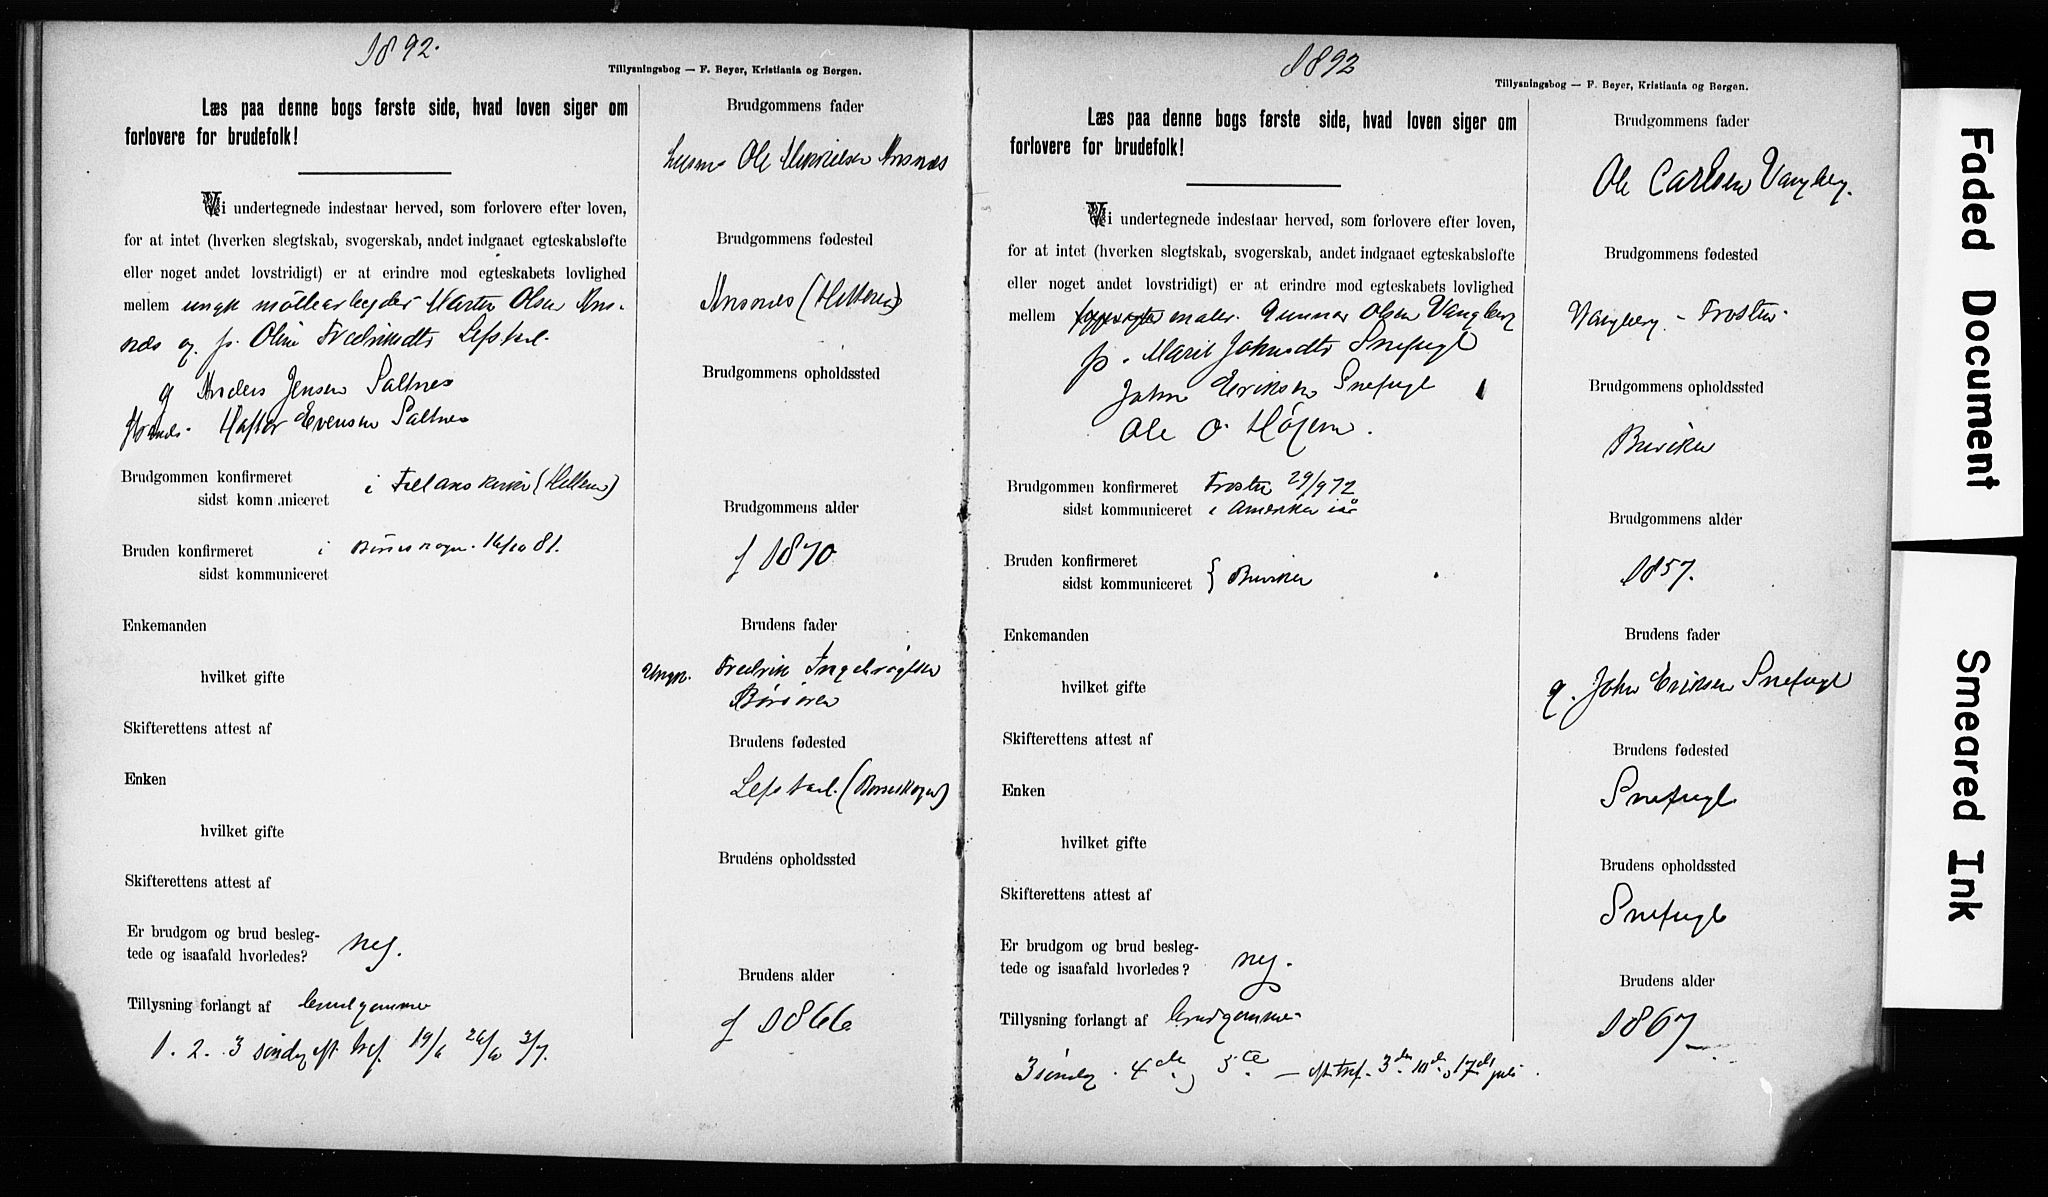 1892.
Tillysningsbog — F. Beyer, Kristiania og Bergen.
Læs paa denne bogs første side, hvad loven siger om
forlovere for brudefolk!
Vi undertegnede indestaar herved, som forlovere efter loven,
for at intet (hverken slegtskab, svogerskab, andet indgaaet egteskabsløfte
eller noget andet lovstridigt) er at erindre mod egteskabets lovlighed
mellem ungk møllearbeyder Marten Olsen Ans-
næs og p. Oline Fredriksdtr Lefstad.
g Anders Jensen Saltnes
Haftor Evensen Saltnes
Brudgommen konfirmeret
sidst kommuniceret
i (Hitteren)
Bruden konfirmeret i Børseskogn 16/10 81.
sidst kommuniceret
Enkemanden
hvilket gifte
Skifterettens attest af
Enken
hvilket gifte
Skifterettens attest af
Er brudgom og brud besleg-
tede og isaafald hvorledes? nej.
Tillysning forlangt af brudgommen
1. 2. 3 søndag eft tref. 19/6 26/6 3/7.
Brudgommens fader
Ole Mikkelsen Ansnæs
Brudgommens fødested
Ansnes (Hitteren)
Brudgommens opholdssted
Brudgommens alder
f 1870
Brudens fader
Ungk. Fredrik Ingebrigtsen
Børsøren
Brudens fødested
Lefstad. (Børseskogn)
Brudens opholdssted
Brudens alder
f 1866
1892
Tillysningsbog — F. Beyer, Kristiania og Bergen.
Læs paa denne bogs første side, hvad loven siger om
forlovere for brudefolk!
Vi undertegnede indestaar herved, som forlovere efter loven,
for at intet (hverken slegtskab, svogerskab, andet indgaaet egteskabsløfte
eller noget andet lovstridigt) er at erindre mod egteskabets lovlighed
mellem maler. Gunnar Olsen Vangberg
p. Marit Johnsdtr Snefugl
John Eriksen Snefugl
Ole O. Høgem.
Brudgommen konfirmeret Frosten 29/9 72
sidst kommuniceret i Amerika iår
Bruden konfirmeret
sidst kommuniceret } Buviken
Enkemanden
hvilket gifte
Skifterettens attest af
Enken
hvilket gifte
Skifterettens attest af
Er brudgom og brud besleg-
tede og isaafald hvorledes? nej.
Tillysning forlangt af brudgommen
3 søndag. 4de og 5te — eft tref. 3de 10de 17de juli.
Brudgommens fader
Ole Carlsen Vangberg.
Brudgommens fødested
Vangberg. - Frosten.
Brudgommens opholdssted
Buviken
Brudgommens alder
1857.
Brudens fader
g. John Eriksen Snefugl
Brudens fødested
Snefugl
Brudens opholdssted
Snefugl
Brudens alder
1867
Faded Document
Smeared Ink